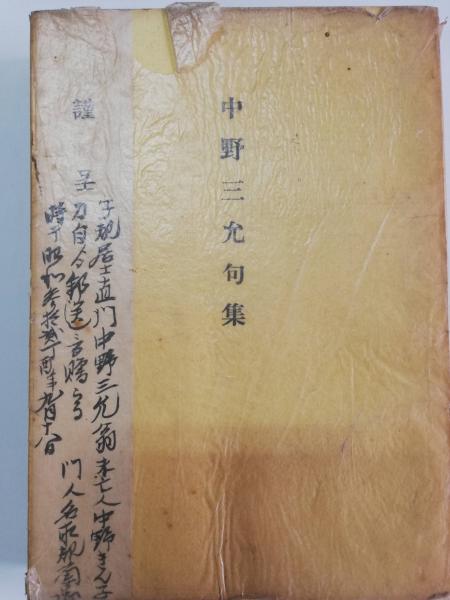 中野三允句集
謹呈
子規居士直門中野三允翁未亡人中野きん子
刀自より郵送言贈
時于昭和参拾弐丁酉年九月十八日
門人